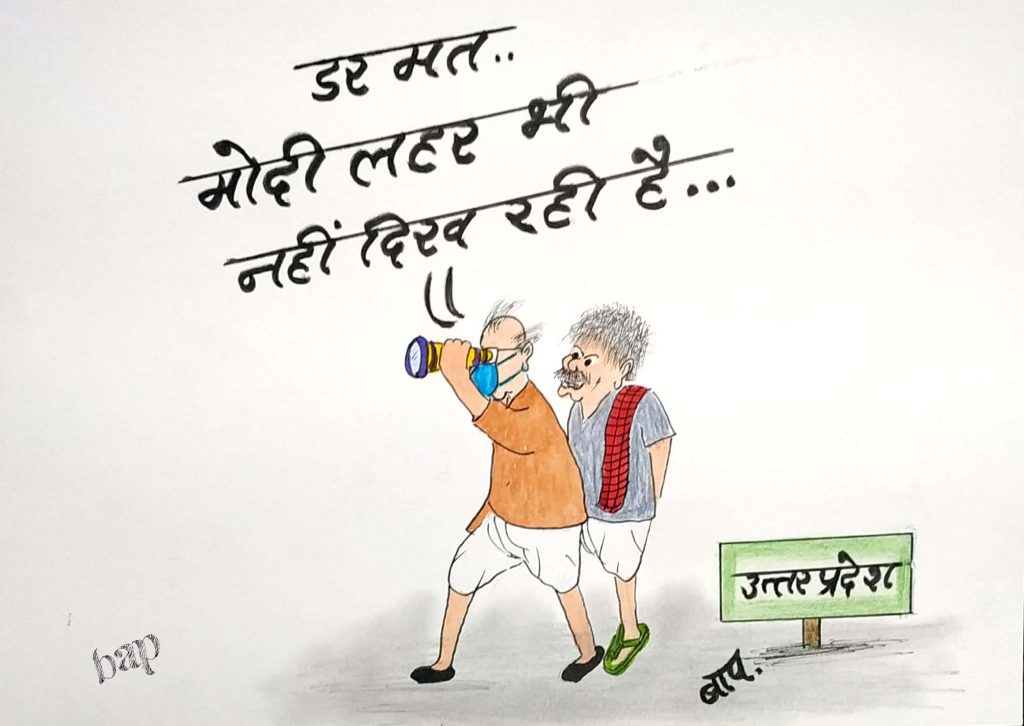 डर मत..
मोदी लहर भी
नहीं दिख रही है...
उत्तर प्रदेश
बाप.
bap